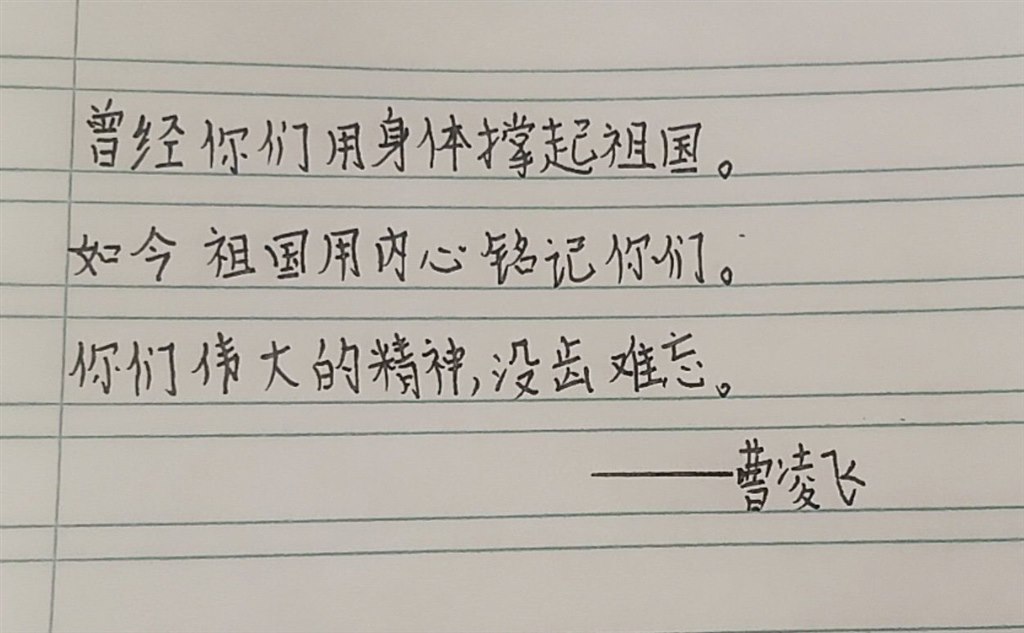 曾经你们用身体撑起祖国。
如今祖国用内心铭记你们。
你们伟大的精神,没齿难忘。
——曹凌飞